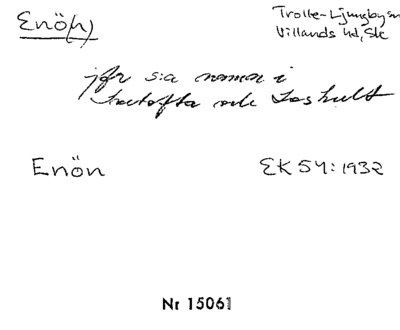 Enö(n)
Trolle-Ljungby sn
Villands hd, Sk
jfr s:a namn i
och Loshult
Enön
EK 54:1932
Nr 15061